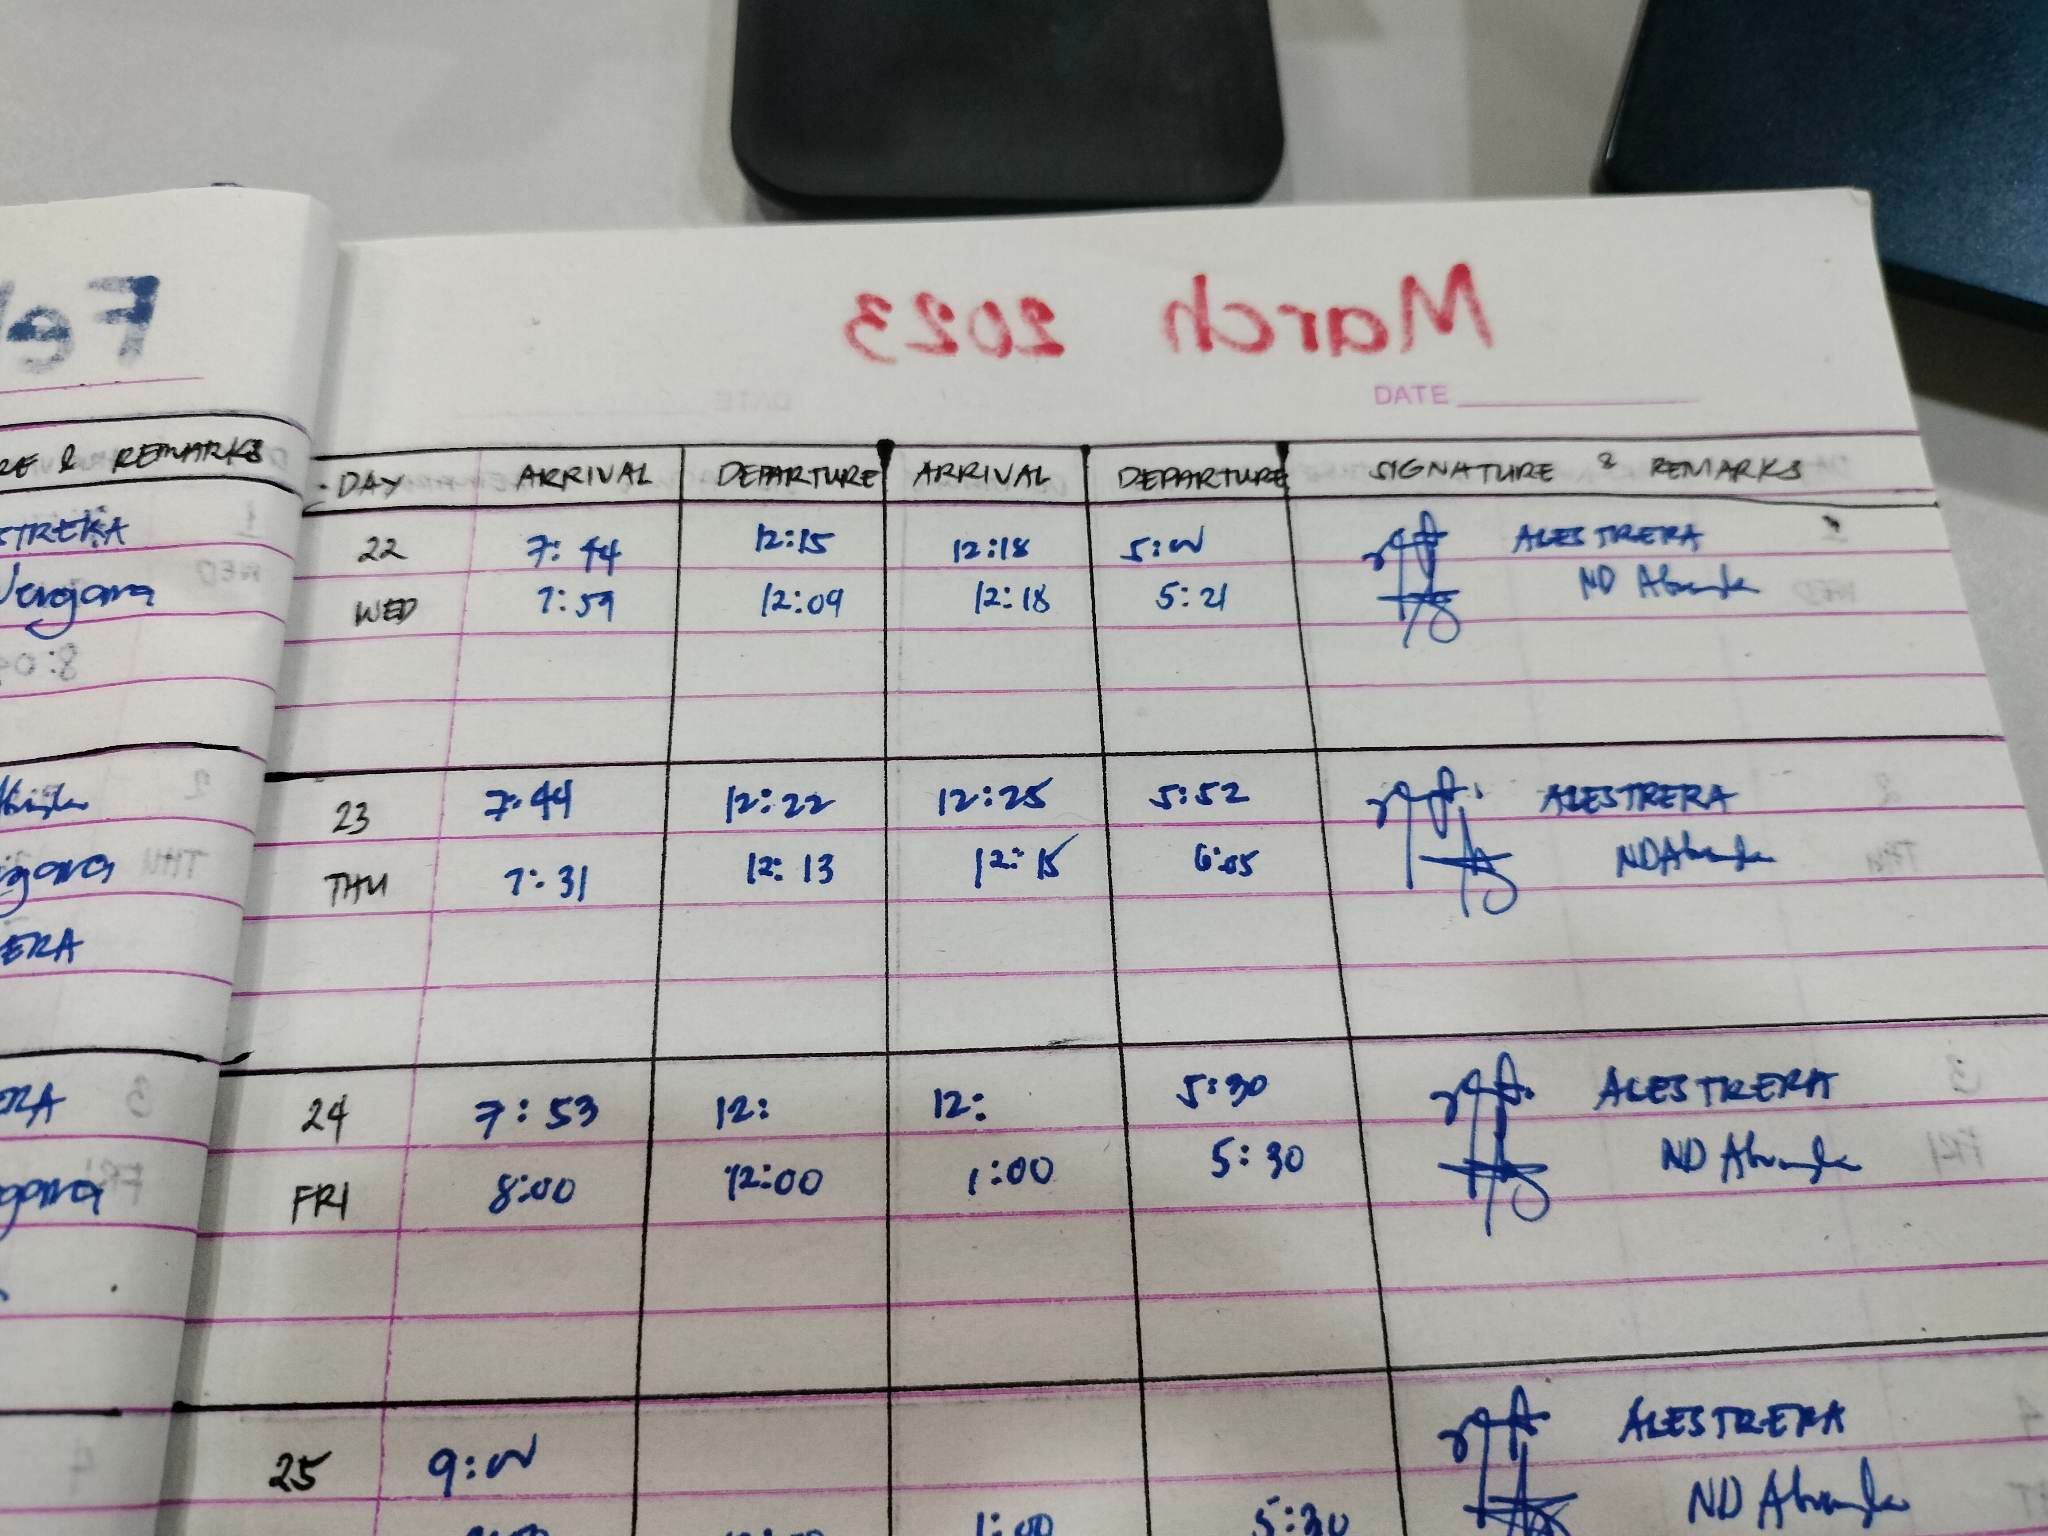 Fe
March 2023
DATE
RE & REMARKS
STRERA
Vergara
ERA
DAY ARRIVAL DEPARTURE ARRIVAL DEPARTURE SIGNATURE & REMARKS
22 7:44 12:15 12:18 5:00 ALESTRERA
WED 7:59 12:09 12:18 5:21 ND
23 7:44 12:22 12:25 5:52 ALESTRERA
THU 7:31 12:13 12:15 6:05 ND
24 7:53 12: 12: 5:30 ALESTRERA
FRI 8:00 12:00 1:00 5:30 ND
25 9:00 ALESTRERA
1:00 5:30 ND